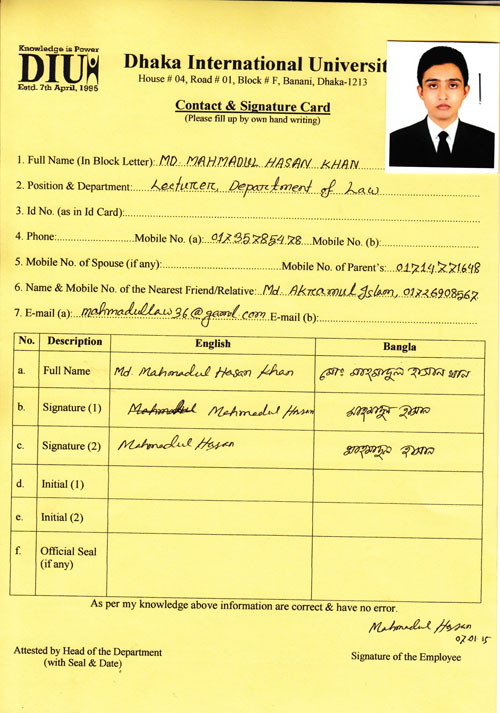 Knowledge is Power
DIU
Estd. 7th April, 1995
Dhaka International Universit
House # 04, Road # 01, Block # F, Banani, Dhaka-1213
Contact & Signature Card
(Please fill up by own hand writing)
1. Full Name (In Block Letter): MD. MAHMADUL HASAN KHAN
2. Position & Department: Lecturer, Department of Law
3. Id No. (as in Id Card):
4. Phone: Mobile No. (a): 01735785478 Mobile No. (b):
5. Mobile No. of Spouse (if any): Mobile No. of Parent's: 01714771648
6. Name & Mobile No. of the Nearest Friend/Relative: Md. Akramul Islam, 01726908567
7. E-mail (a): mahmadullaw36@gmail.com E-mail (b):
No. Description English Bangla
a. Full Name Md. Mahmadul Hasan Khan মোঃ মাহমাদুল হাসান খান
b. Signature (1) Mahmadul Mahmadul Hasan মাহমাদুল হাসান
c. Signature (2) Mahmadul Hasan মাহমাদুল হাসান
d. Initial (1)
e. Initial (2)
f. Official Seal
(if any)
As per my knowledge above information are correct & have no error.
Mahmadul Hasan
07.01.15
Attested by Head of the Department
(with Seal & Date)
Signature of the Employee